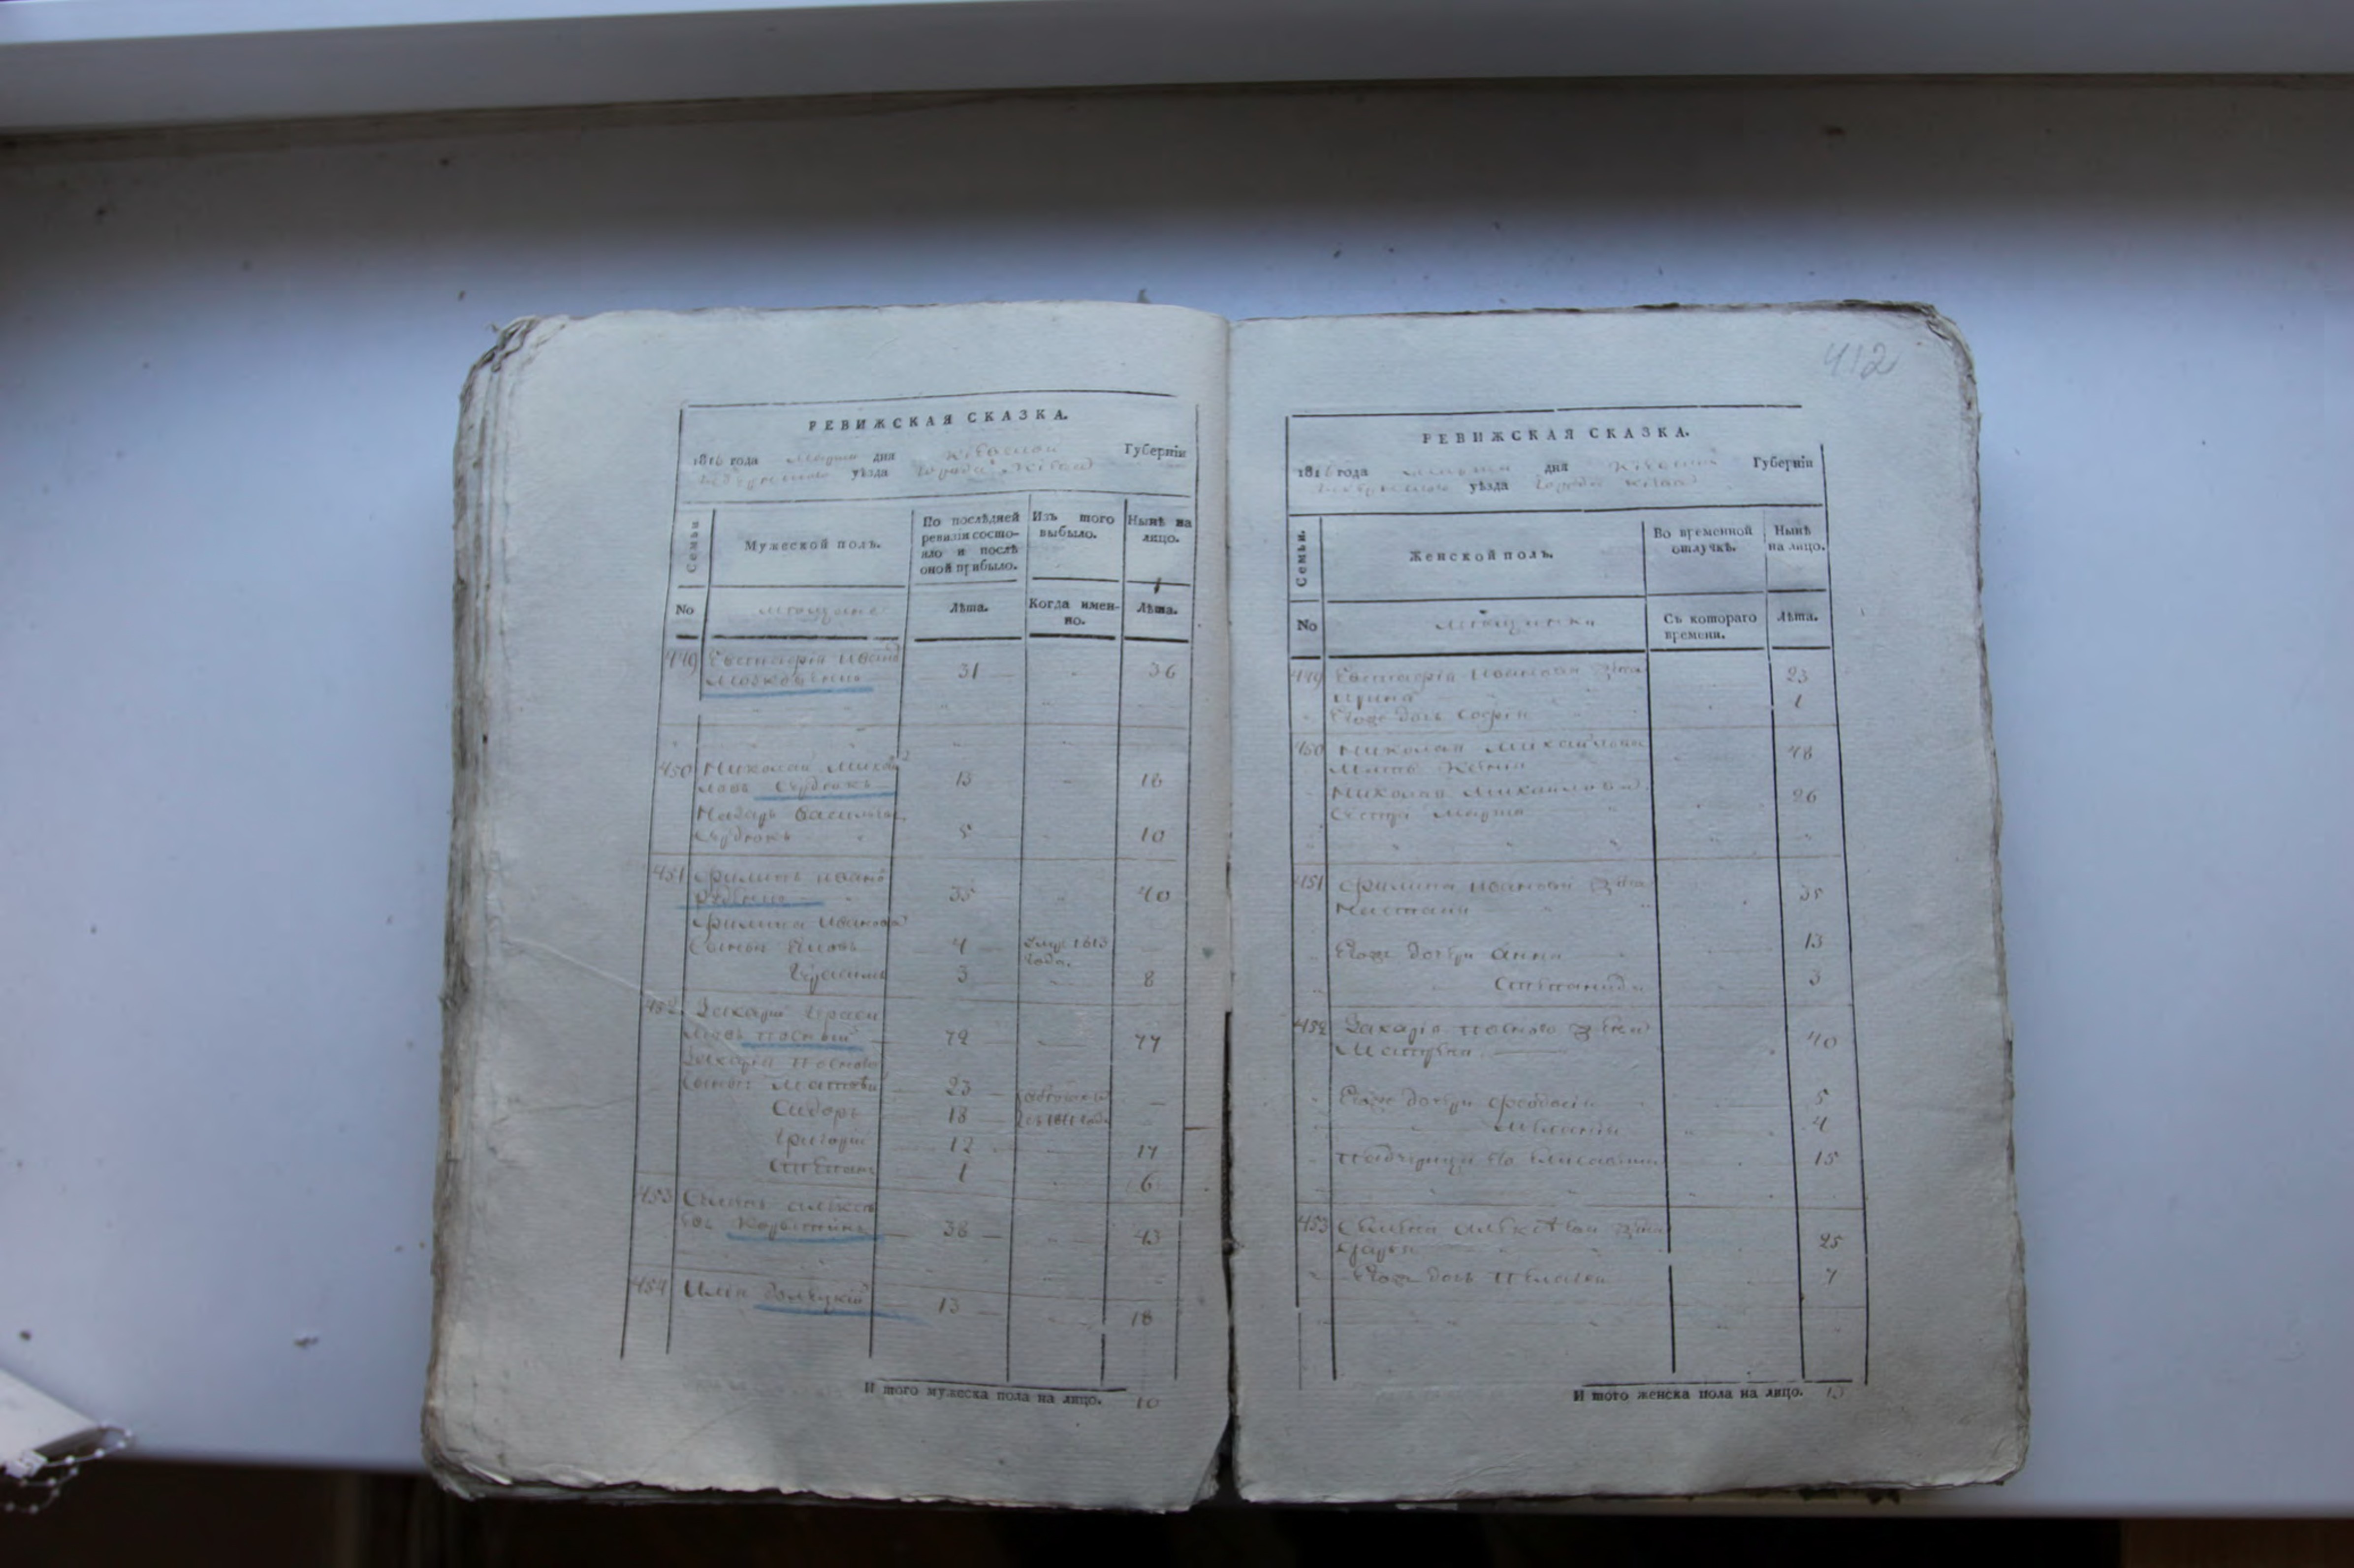 РЕВИЖСКАЯ СКАЗКА.
1816 года Марта дня Кіевской Губерніи
уѣзда города Кіева
Семьи
Мужеской полъ.
По послѣдней ревизіи состояло и послѣ оной прибыло.
Изъ того выбыло.
Нынѣ на лицо.
No
мещане
Лѣта.
Когда именно.
Лѣта.
449 Евстафій Ивановъ
31 36
450 Николай Михайловъ Сердюкъ 13 18
Назаръ Васильевъ
Сердюкъ 5 10
451 Филипъ Ивановъ
35 40
Филипа Иванова
Сыновья Яковъ 4 умре 1813 года.
Герасимъ 3 8
452 Захарій Герасимовъ Посный 72 77
Захарія Посного
Сыновья Матвѣй 23
Сидоръ 18 1811 года
Григорій 12 17
Степанъ 1 6
453 Семенъ Алексѣевъ
38 43
454 Илія 13 18
И того мужеска пола на лицо. 10
412
РЕВИЖСКАЯ СКАЗКА.
1816 года Марта дня Кіевской Губерніи
уѣзда города Кіева
Семьи.
Женской полъ.
Во временной отлучкѣ.
Нынѣ на лицо.
No
мещанки
Съ котораго времени.
Лѣта.
449 Евстафія Иванова жена
Ирина 23
Егоже дочь Софія 1
450 Николая Михайлова
Мать Ксенія 48
Николая Михайлова
Сестра Марія 26
451 Филипа Иванова жена
Настасія 35
Егоже дочери Анна 13
Степанида 3
452 Захарія Посного жена
Матрена 40
Егоже дочери Феодосія 5
Меланія 4
Падчерица его Елисавета 15
453 Семена Алексѣева жена
Дарья 25
Егоже дочь Пелагея 7
И того женска пола на лицо. 13